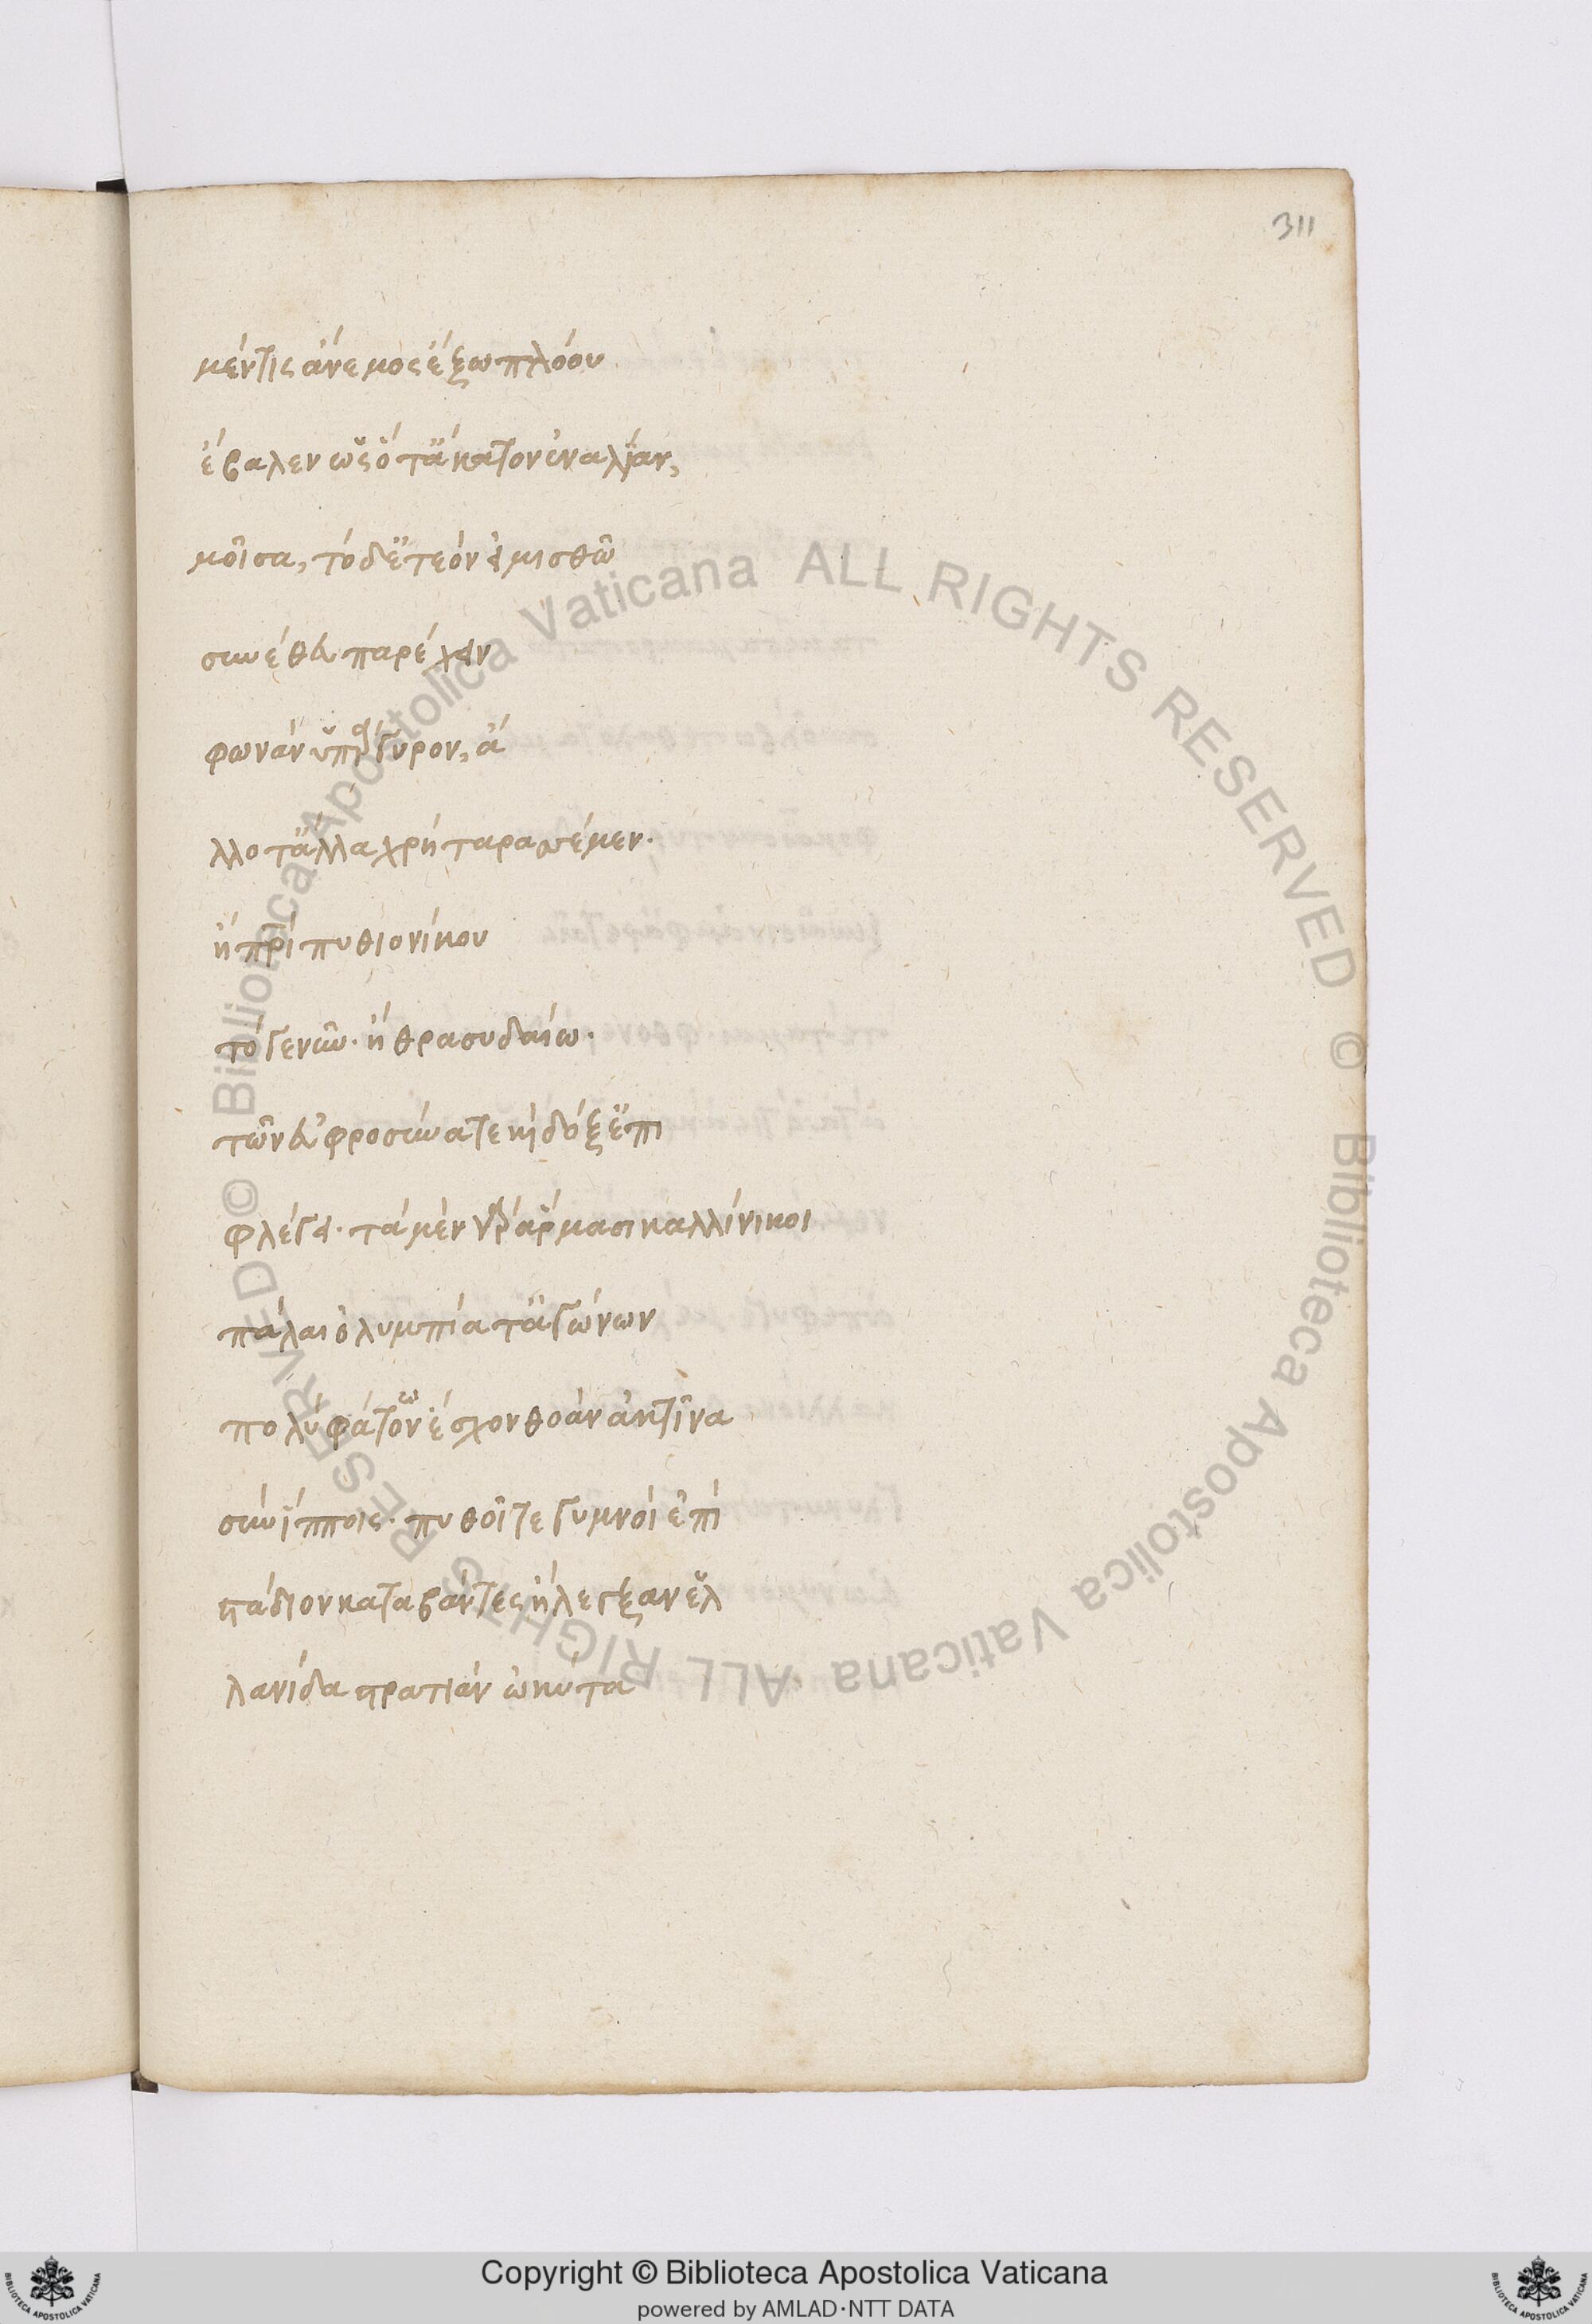 311
μέν τις ἄνεμος ἔξω πλόου
ἔβαλεν ὡς ὅτ' ἄκατον εἰναλίαν,
μοῖσα, τὸ δ' ἐτεὸν εἰ μισθῶ
συνέθευ παρέχειν
φωνὰν ὑπάργυρον, ἄ
λλοτ' ἄλλα χρὴ ταρασσέμεν·
ἢ πατρὶ πυθιονίκου
τό γε νῦν· ἢ θρασυδαίω·
τῶν εὐφροσύνα τε καὶ δόξ' ἐπι
φλέγει· τὰ μὲν ἐν ἅρμασι καλλίνικοι
πάλαι ὀλυμπία τ' ἀγώνων
πολυφάτων ἔσχον θοὰν ἀκτῖνα
σὺν ἵπποις· πυθοῖ τε γυμνοὶ ἐπὶ
στάδιον καταβάντες ἤλεγξαν ἑλ
λανίδα στρατιὰν ὠκύτα
© Biblioteca Apostolica Vaticana ALL RIGHTS RESERVED © Biblioteca Apostolica Vaticana ALL RIGHTS RESERVED
Copyright © Biblioteca Apostolica Vaticana
powered by AMLAD·NTT DATA
BIBLIOTECA APOSTOLICA VATICANA
BIBLIOTECA APOSTOLICA VATICANA